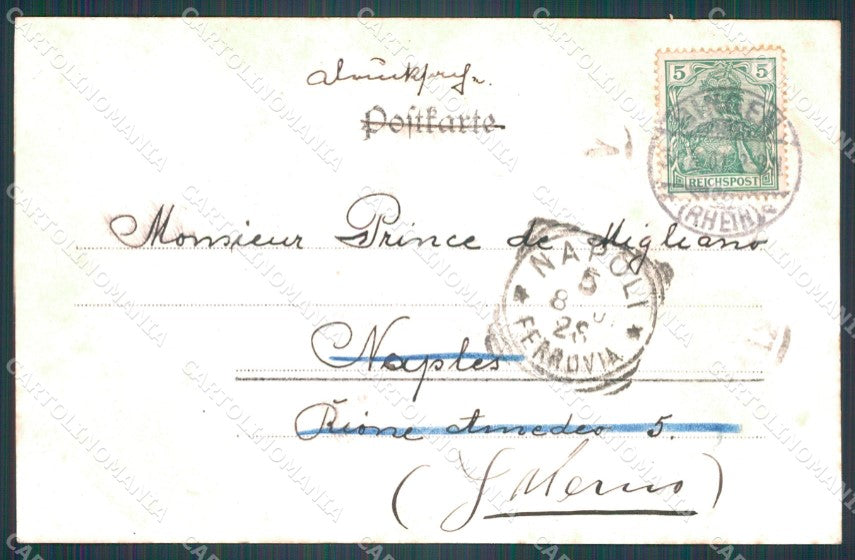 Drucksache.
Postkarte
5 5
REICHSPOST
BINGEN
(RHEIN)
Monsieur Prince de Migliano
NAPOLI
5
8
28
FERROVIA
Naples
Rione Amedeo 5.
(Salerno)
CARTOLINOMANIA